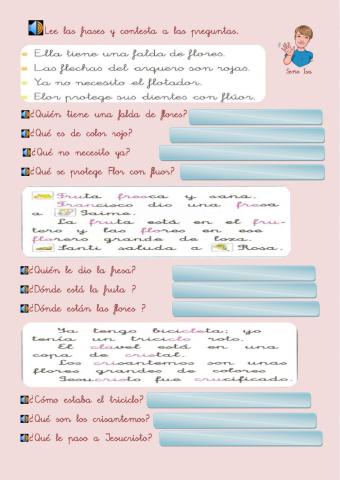 Lee las frases y contesta a las preguntas.
Ella tiene una falda de flores.
Las flechas del arquero son rojas.
Ya no necesito el flotador.
Flor protege sus dientes con flúor.
Seño Isa
¿Quién tiene una falda de flores?
¿Qué es de color rojo?
¿Qué no necesito ya?
¿Qué se protege Flor con fluor?
Fruta fresca y sana.
Francisco dio una fresa
a Jaime.
La fruta está en el fru-
tero y las flores en ese
florero grande de loza.
Santi saluda a Rosa.
¿Quién le dio la fresa?
¿Dónde está la fruita ?
¿Dónde están las flores ?
Ya tengo bicicleta; yo
tenía un triciclo roto.
El clavel está en una
copa de cristal.
Los crisantemos son unas
flores grandes de colores
Jesucristo fue crucificado.
¿Cómo estaba el triciclo?
¿Qué son los crisantemos?
¿Qué le paso a Jesucristo?